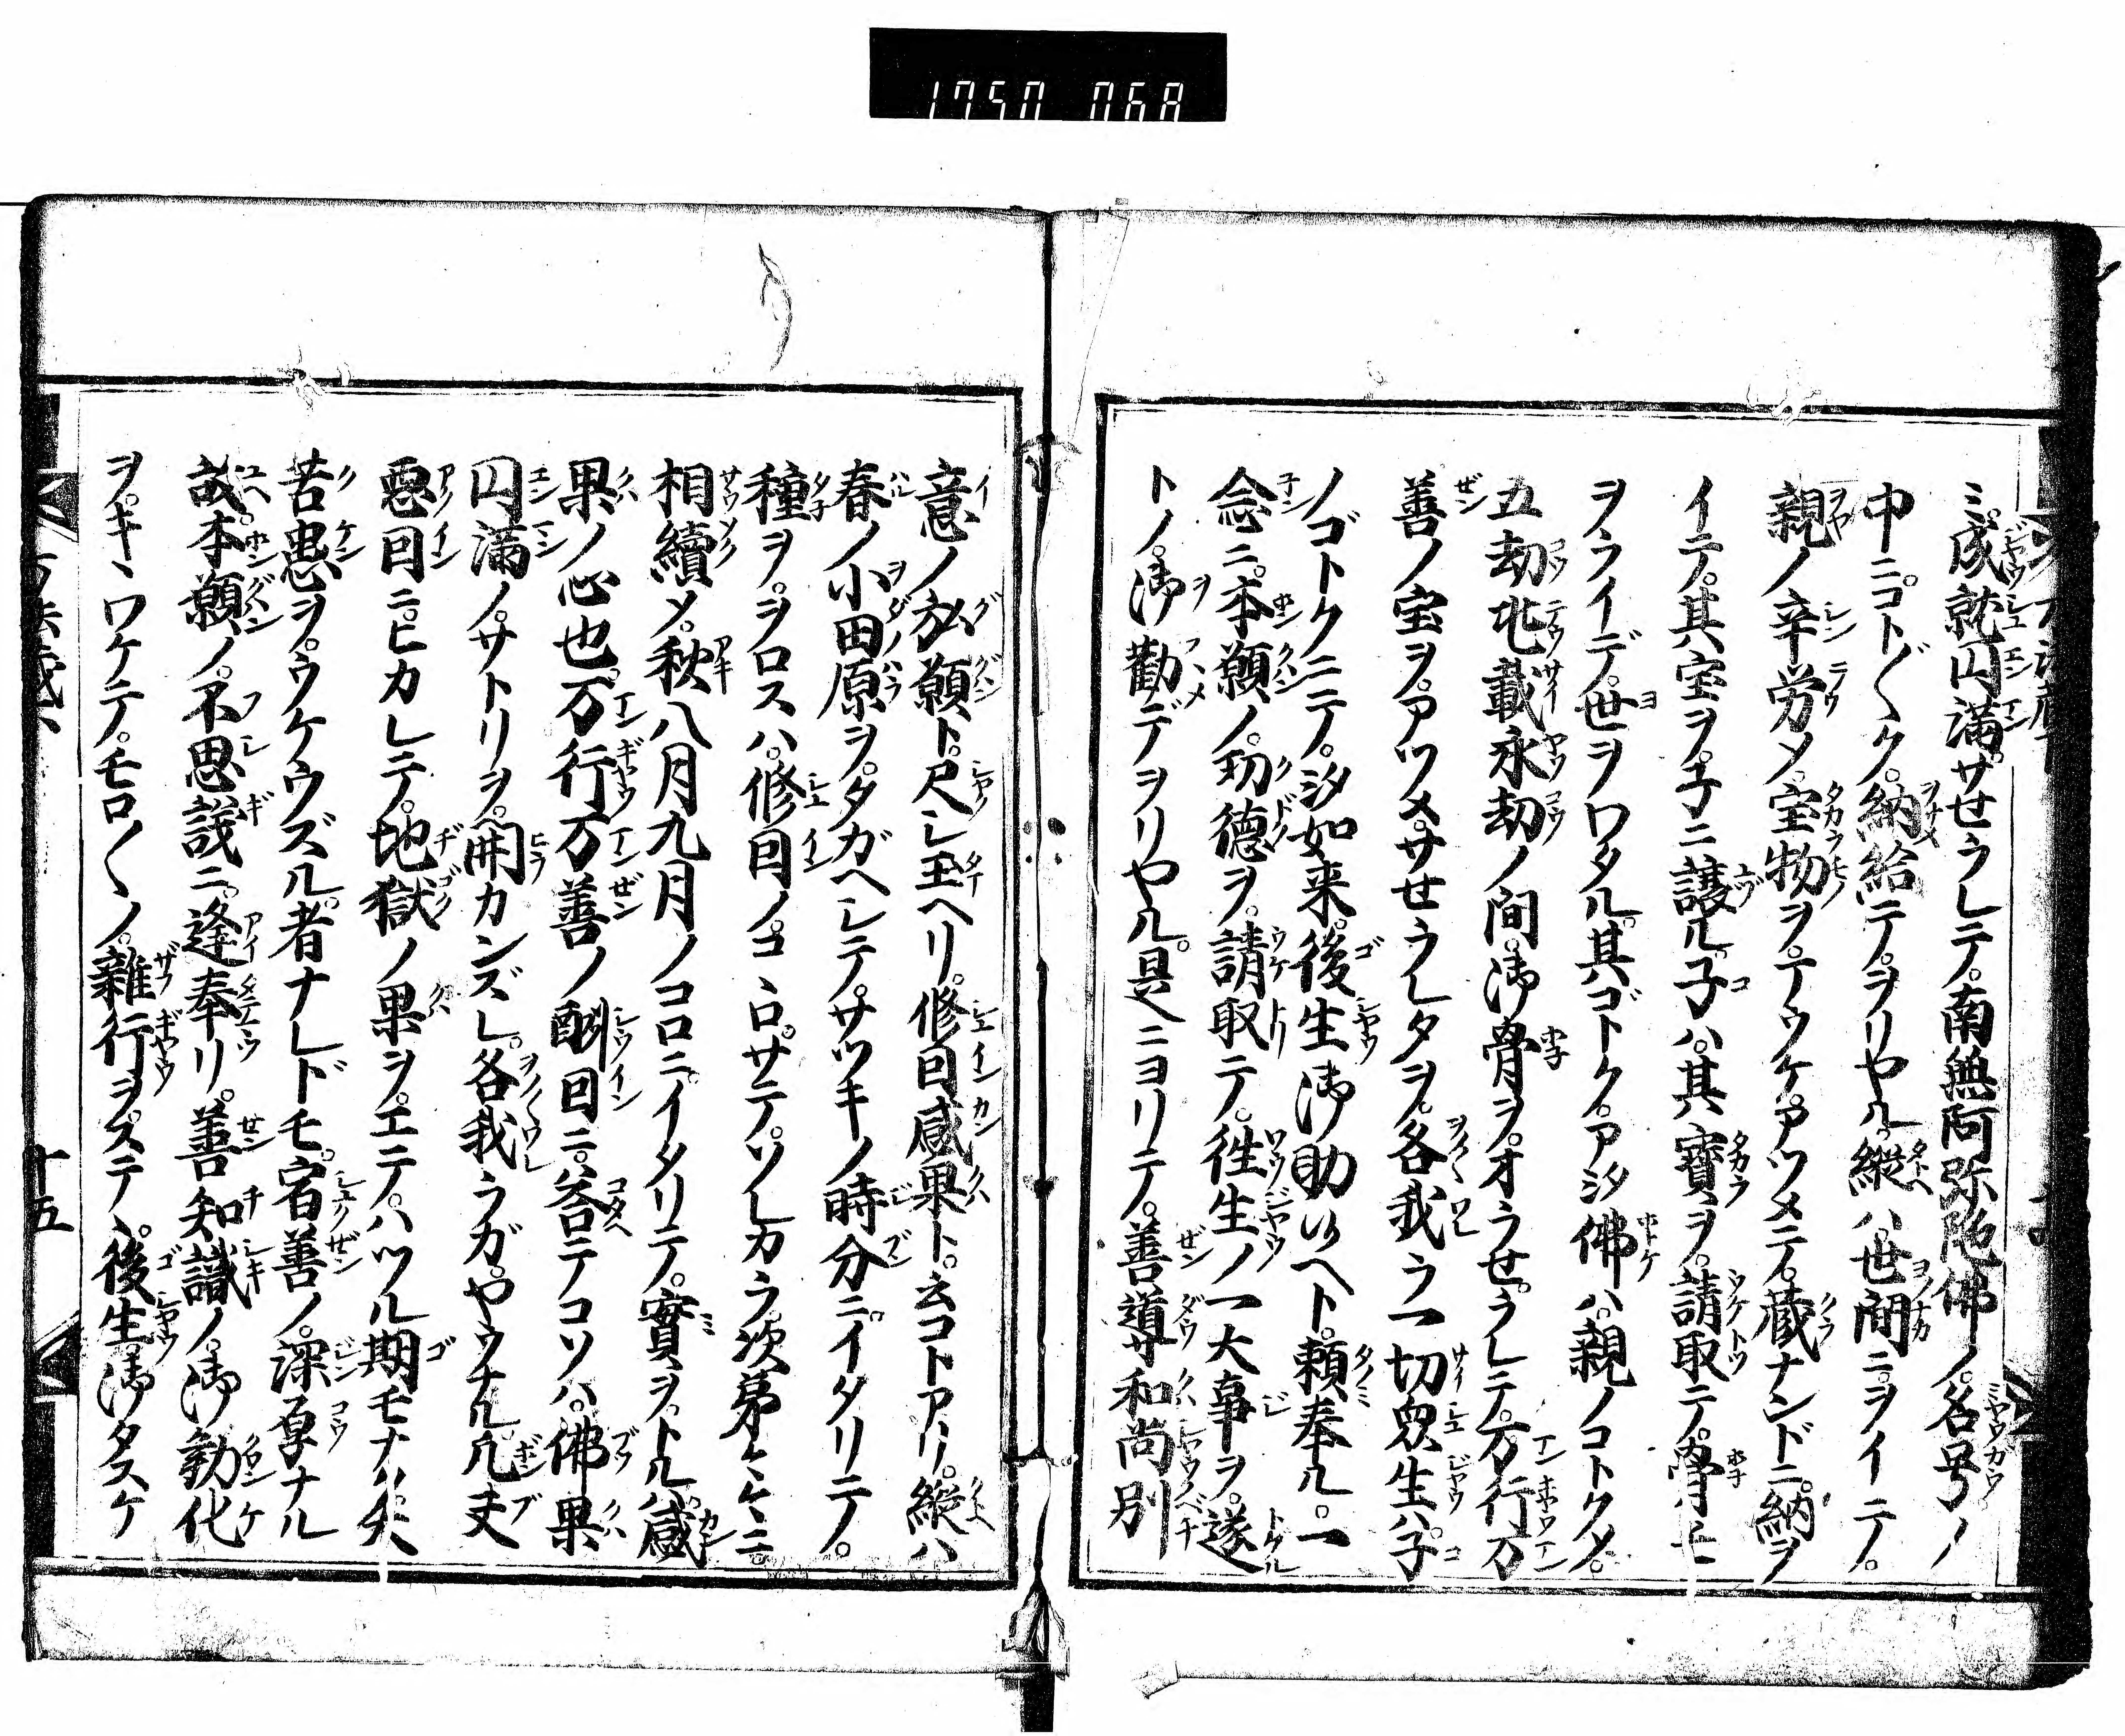 1750 068
ミ。成就円満。サセラレテ。南無阿弥陀佛ノ。名号ノ
中ニ。コト〲ク。納給テ。ヲリヤル。縦ハ。世間ニ。ヲイテ。
親ノ辛労メ。宝物ヲ。マウケ。アツメテ。蔵ナンドニ。納ヲ
イテ。其宝ヲ。子ニ譲ル。子ハ。其寳ヲ。請取テ。骨モ
ヲライデ。世ヲワタル。其ゴトク。アミタ佛ハ。親ノコトクメ。
五劫兆載永劫ノ間。御骨ヲ。オラせ。ラレテ。万行万
善ノ宝ヲ。アツメ。サせラレタヲ。各我ラ一切衆生ハ。子
ノゴトクニテ。弥如来。後生御助ケ候ヘト。頼奉ル。一
念ニ。本願ノ。功徳ヲ。請取テ。徃生ノ一大事ヲ。遂
トノ。御勸デヲリヤル。是ニヨリテ。善導和尚別
意ノ弘願ト。尺シ玉ヘリ。修因感果ト。云コトアリ。縦ハ
春ノ小田原ヲ。タガヘシテ。サツキノ時分ニ。イタリテ。
種ヲ。ヲロスハ。修因ノ。コヽロ。サテ。ソレカラ。次第〱ニ。
相續メ。秋八月九月ノコロニ。イタリテ。實ヲ。トルハ。感
果ノ心也。万行万善ノ酬因ニ。答テコソハ。佛果
円満ノ。サトリヲ。開カンズレ。各我ラガ。ヤウナル。凡夫
悪因ニ。ヒカレテ。地獄ノ果ヲ。エテ。ハツル期モナク。矢
苦患ヲ。ウケウズル。者ナレドモ。宿善ノ。深厚ナル
故。本願ノ。不思議ニ。逢奉リ。善知識ノ。御勧化
ヲ。キヽワケテ。モロ〱ノ。雜行ヲ。ステヽ。後生御タスケ
十五